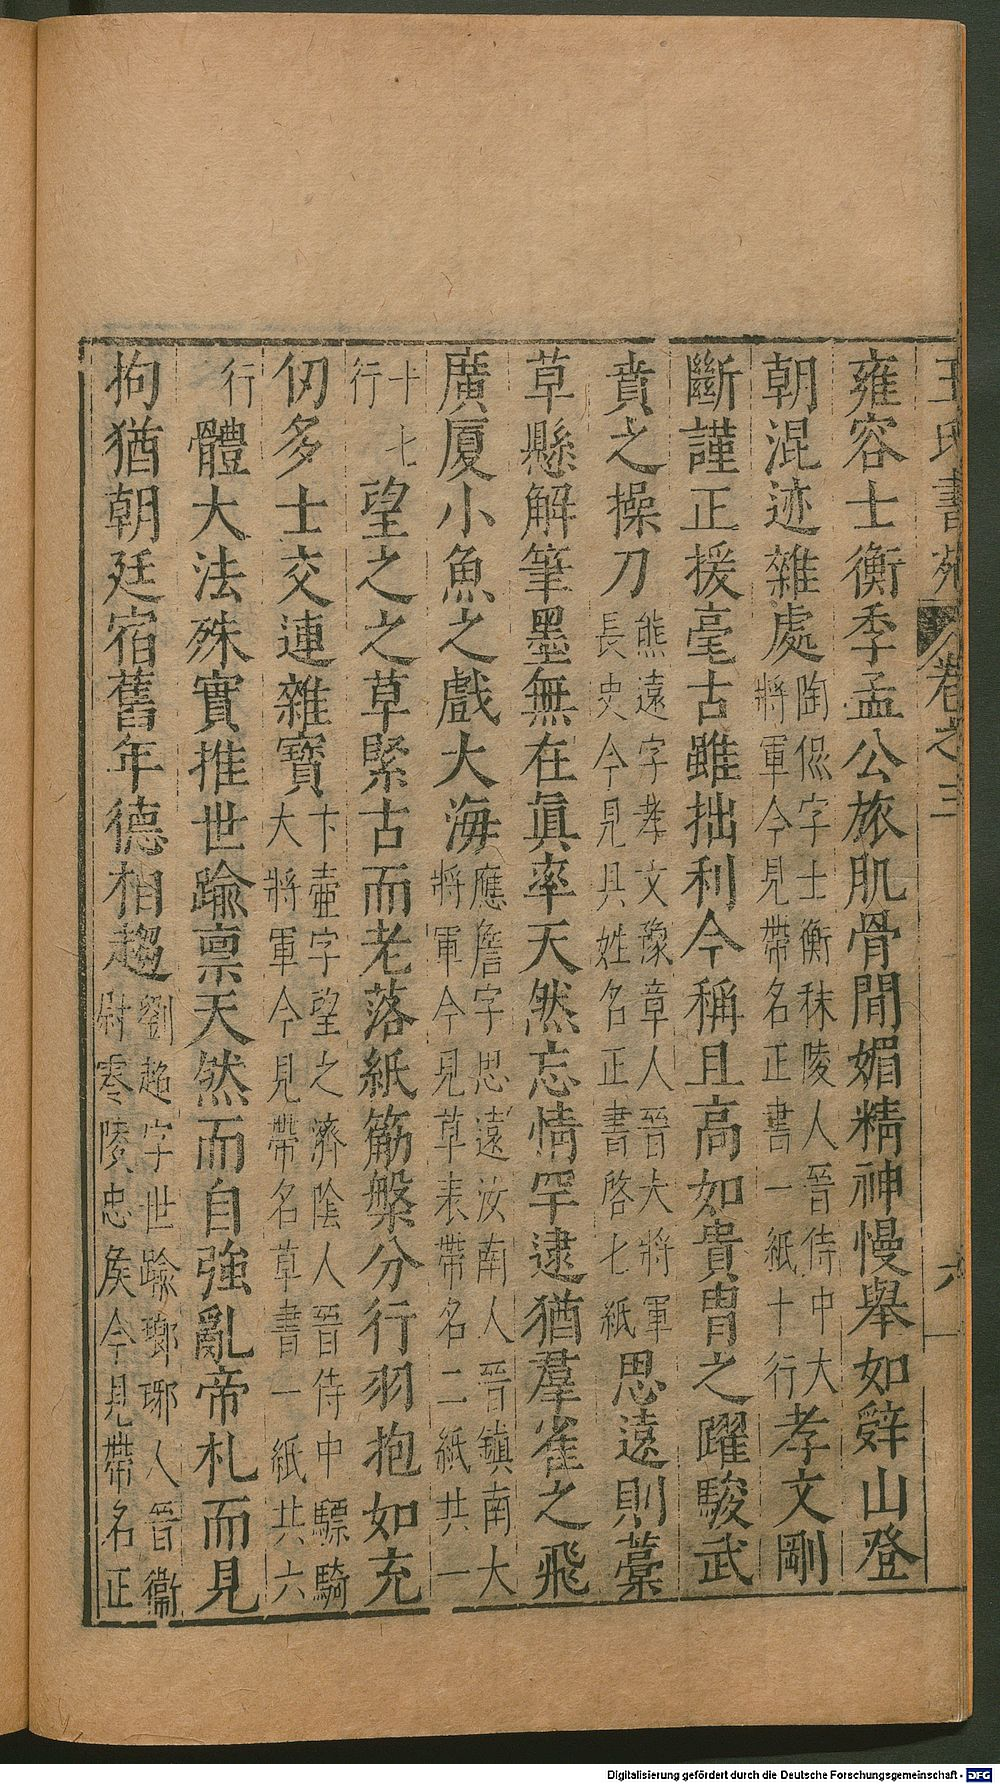 王氏書苑 卷之三 六
雍容士衡季孟公旅肌骨閒媚精神慢舉如辭山登
朝混迹雜處陶侃字士衡秣陵人晉侍中大將軍今見帶名正書一紙十行孝文剛
斷謹正援毫古雖拙利今稱且高如貴胄之躍駿武
賁之操刀熊遠字孝文豫章人晉大將軍長史今見具姓名正書啓七紙思遠則藁
草縣解筆墨無在眞率天然忘情罕逮猶羣雀之飛
廣厦小魚之戲大海應詹字思遠汝南人晉鎮南大將軍今見草表帶名二紙共一
十七行望之之草緊古而老落紙筋槃分行羽抱如充
仞多士交連雜寶卞壷字望之濟陰人晉侍中驃騎大將軍今見帶名草書一紙共六
行體大法殊實推世踰禀天然而自強亂帝札而見
拘猶朝廷宿舊年德相趨劉超字世踰瑯琊人晉衞尉零陵忠矦今見帶名正
Digitalisierung gefördert durch die Deutsche Forschungsgemeinschaft - DFG